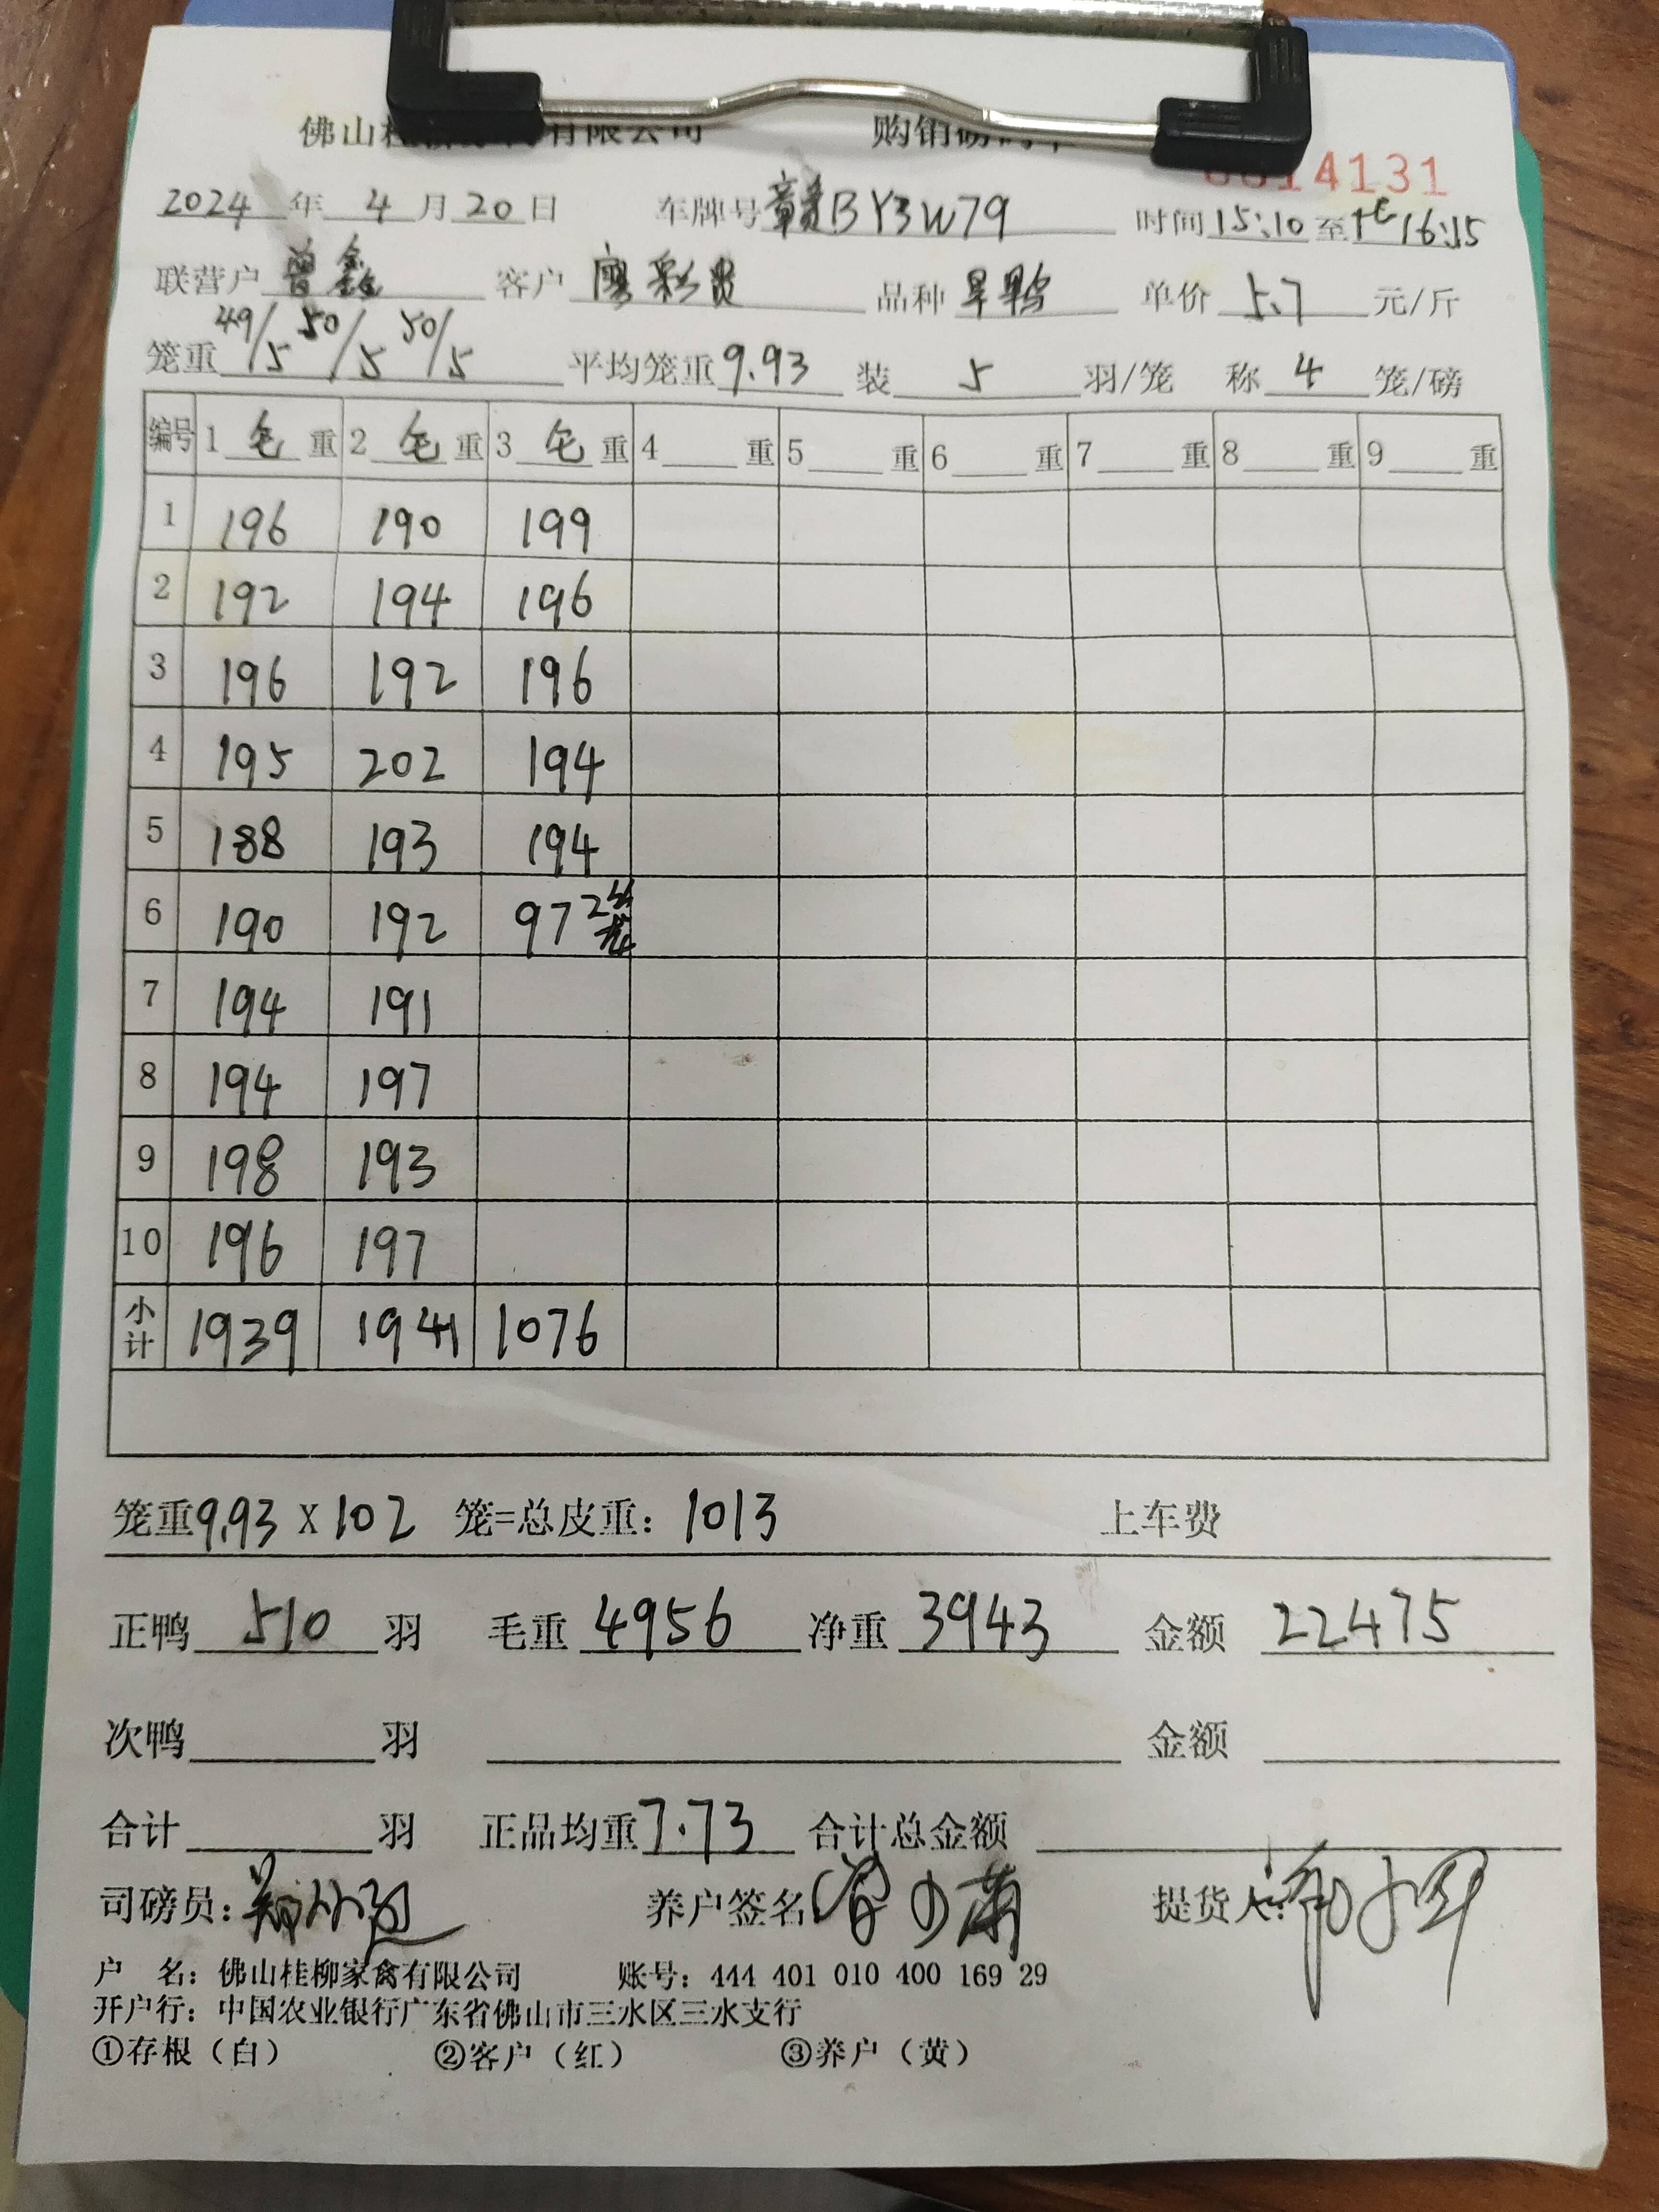 佛山桂 有限公司 购销磅码单
14131
2024年 4月20日 车牌号 赣BY3W79 时间 15:10 至 16:15
联营户 曾鑫 客户 廖彩贵 品种 旱鸭 单价 5.7 元/斤
笼重 49/5 50/5 50/5 平均笼重 9.93 装 5 羽/笼 称 4 笼/磅
编号 1 毛 重 2 毛 重 3 毛 重 4 重 5 重 6 重 7 重 8 重 9 重
1 196 190 199
2 192 194 196
3 196 192 196
4 195 202 194
5 188 193 194
6 190 192 97 2 笼
7 194 191
8 194 197
9 198 193
10 196 197
小计 1939 1941 1076
笼重 9.93 X 102 笼=总皮重: 1013 上车费
正鸭 510 羽 毛重 4956 净重 3943 金额 22475
次鸭 羽 金额
合计 羽 正品均重 7.73 合计总金额
司磅员: 养户签名 提货人:
户 名: 佛山桂柳家禽有限公司 账号: 444 401 010 400 169 29
开户行: 中国农业银行广东省佛山市三水区三水支行
①存根（白） ②客户（红） ③养户（黄）